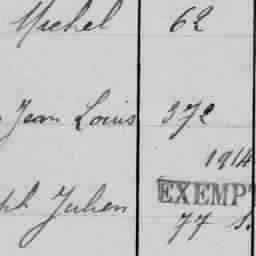 Michel 62
Jean Louis 372
1914
EXEMPT
ph Julien 77 S.